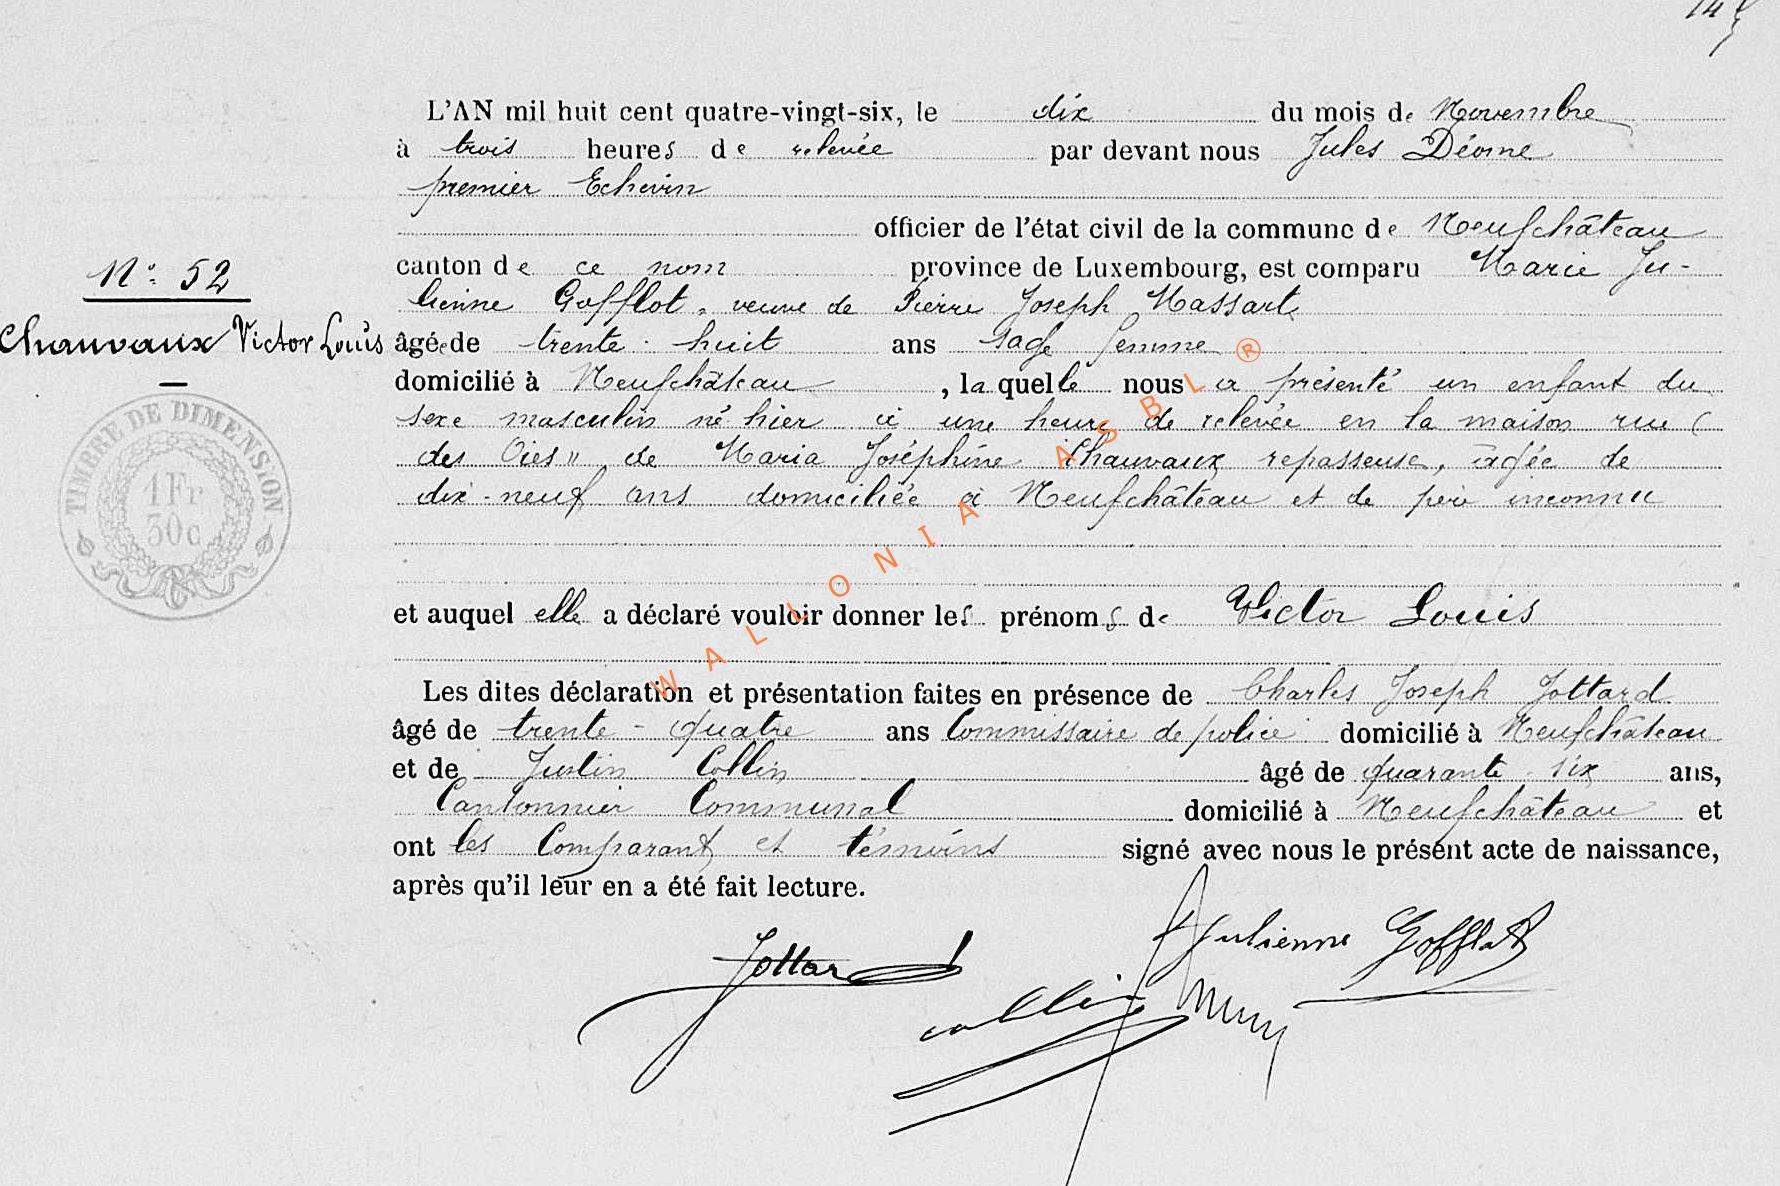 L'AN mil huit cent quatre-vingt-six, le dix du mois de Novembre
à trois heures de relevée par devant nous Jules Déome
premier Echevin
officier de l'état civil de la commune de Neufchâteau
canton de ce nom province de Luxembourg, est comparu Marie Ju-
lienne Gofflot, veuve de Pierre Joseph Massart
âgée de trente-huit ans sage femme
domicilié à Neufchâteau, laquelle nous a présenté un enfant du
sexe masculin né hier à une heure de relevée en la maison rue
des Oies" de Maria Joséphine Chauvaux repasseuse, âgée de
dix-neuf ans domiciliée à Neufchâteau et de père inconnu
et auquel elle a déclaré vouloir donner les prénoms de Victor Louis
Les dites déclaration et présentation faites en présence de Charles Joseph Jottard
âgé de trente-quatre ans Commissaire de police domicilié à Neufchâteau
et de Justin Collin âgé de quarante six ans,
Cantonnier Communal domicilié à Neufchâteau et
ont les Comparant et témoins signé avec nous le présent acte de naissance,
après qu'il leur en a été fait lecture.
N° 52
Chauvaux Victor Louis
TIMBRE DE DIMENSION
1Fr
30c
Jottard
Collin
Julienne Gofflot
WALLONIA ASBL ®